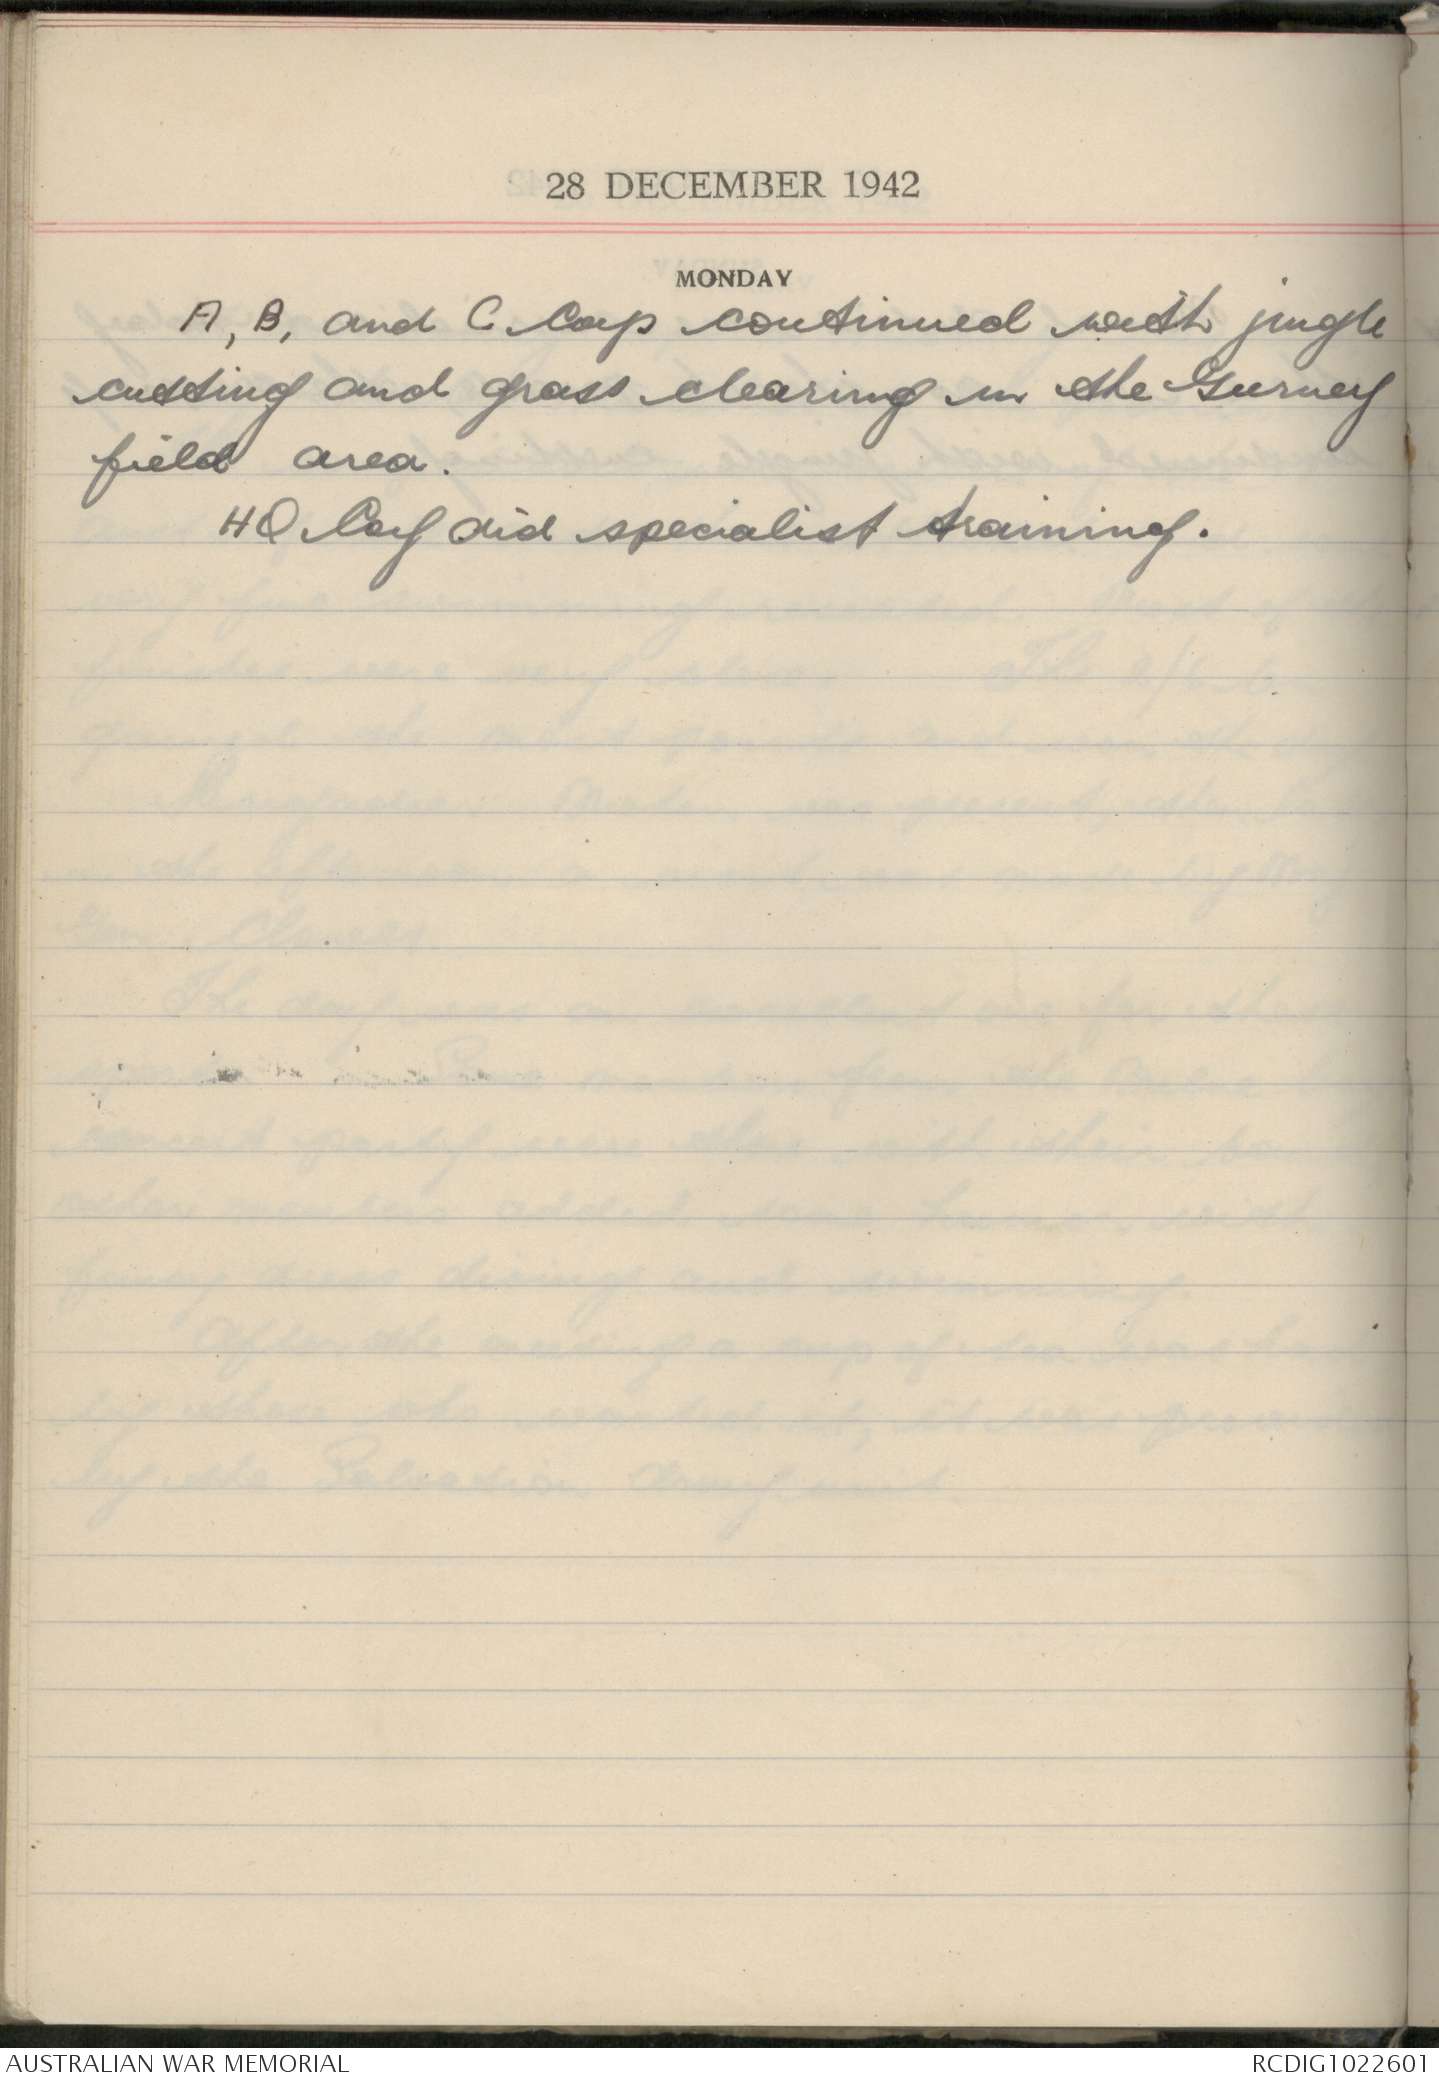 28 DECEMBER 1942
MONDAY
A, B, and C Coys continued with jungle
cutting and grass clearing in the Gurney
field area.
HQ Coy did specialist training.
AUSTRALIAN WAR MEMORIAL
RCDIG1022601